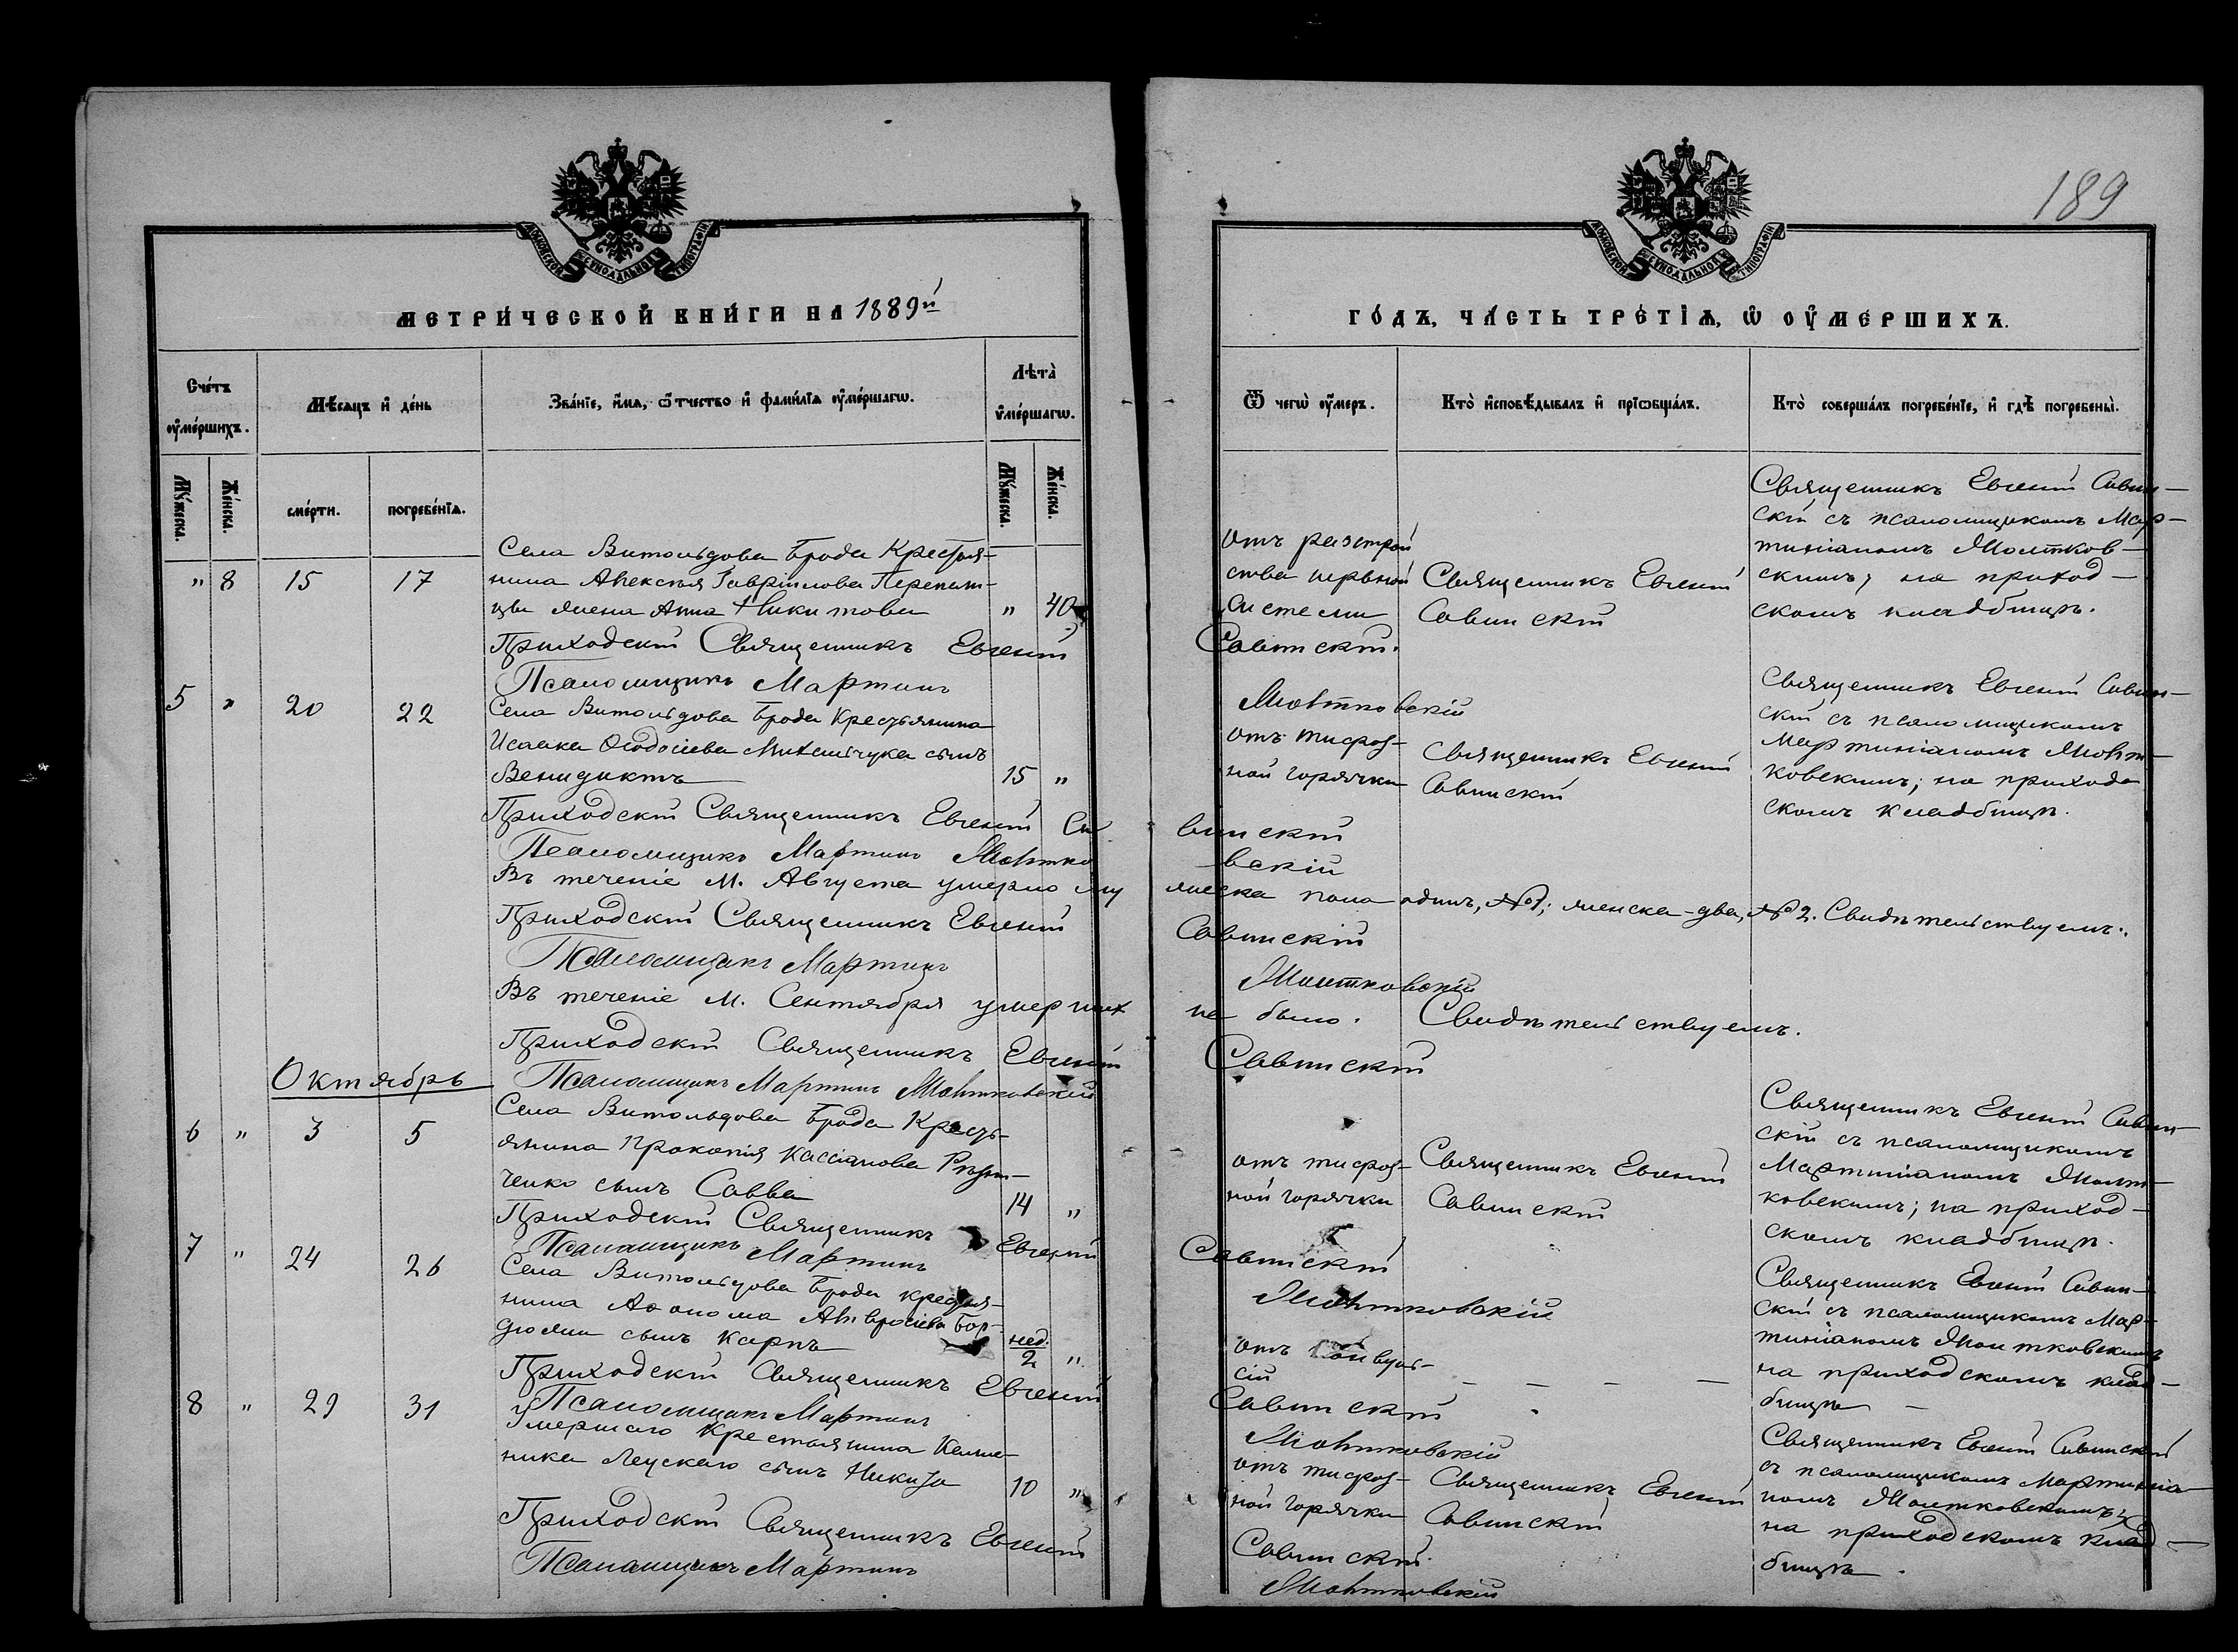 189
МОСКОВСКОЙ СѴНОДАЛЬНОЙ ТИПОГРАФІИ
МОСКОВСКОЙ СѴНОДАЛЬНОЙ ТИПОГРАФІИ
МЕТРИ́ЧЕСКОЙ КНИ́ГИ НА 1889й
ГО́ДЪ, ЧА́СТЬ ТРЕ́ТІѦ, Ѡ ОУМЕ́РШИХЪ.
Сче́тъ оуме́ршихъ.
Мѣ́сяцъ и де́нь
Зва́нїе, и́мѧ, ѻ́тчество и фами́лїѧ оуме́ршагѡ.
Лѣта̀ оуме́ршагѡ.
Ѿ чегѡ̀ оу́меръ.
Кто̀ исповѣ́дывалъ и прїѡбща́лъ.
Кто̀ соверша́лъ погребе́нїе, и гдѣ̀ погребены̀.
Мꙋ́жеска.
Же́нска.
сме́рти.
погребе́нїѧ.
Мꙋ́жеска.
Же́нска.
" 8 15 17
Села Витольдова Брода Крестья-
нина Алексѣя Гавріилова
жена Анна Никитова " 40
отъ разстрой
ства нервной
системи
Священникъ Евгеній
Савинскій
Священникъ Евгеній Савин-
скій съ псаломщикомъ Мар-
тиніаномъ
скимъ; на приход-
скомъ кладбищѣ.
Приходскій Священникъ Евгеній Савинскій.
Псаломщикъ Мартинъ
5 " 20 22
Села Витольдова Брода Крестьянина
Исаака Ѳеодосіева сынъ
Венидиктъ 15 "
отъ тифоз-
ной горячки
Священникъ Евгеній
Савинскій
Священникъ Евгеній Савин-
скій съ псаломщикомъ
Мартиніаномъ
ковскимъ; на приход-
скомъ кладбищѣ.
Приходскій Священникъ Евгеній Савинскій
Псаломщикъ Мартинъ
Въ теченіе м. Августа умерло мужеска пола одинъ, №1; женска-два, №2. Свидѣтельствуемъ:
Приходскій Священникъ Евгеній Савинскій
Псаломщикъ Мартинъ
Въ теченіе м. Сентября умерших не было. Свидѣтельствуемъ.
Приходскій Священникъ Евгеній Савинскій
Псаломщикъ Мартинъ
Октябрь
6 " 3 5
Села Витольдова Брода Кресть-
янина Прокопія Кассіанова
ченко сынъ Савва 14 "
отъ тифоз-
ной горячки
Священникъ Евгеній
Савинскій
Священникъ Евгеній Савин-
скій съ псаломщикомъ
Мартиніаномъ
ковскимъ; на приход-
скомъ кладбищѣ.
Приходскій Священникъ Евгеній Савинскій
Псаломщикъ Мартинъ
7 " 24 26
Села Витольдова Брода крестья-
нина Амвросіева
сынъ Карпъ нед. 2 "
отъ конвуль-
сій
Священникъ Евгеній Савин-
скій съ псаломщикомъ Мар-
тиніаномъ
на приходскомъ клад-
бищѣ
Приходскій Священникъ Евгеній Савинскій
Псаломщикъ Мартинъ
8 " 29 31
Умершаго Крестьянина
ника сынъ Никита 10 "
отъ тифоз-
ной горячки
Священникъ Евгеній
Савинскій
Священникъ Евгеній Савинскій
съ псаломщикомъ Мартиніа-
номъ
на приходскомъ клад-
бищѣ.
Приходскій Священникъ Евгеній Савинскій.
Псаломщикъ Мартинъ